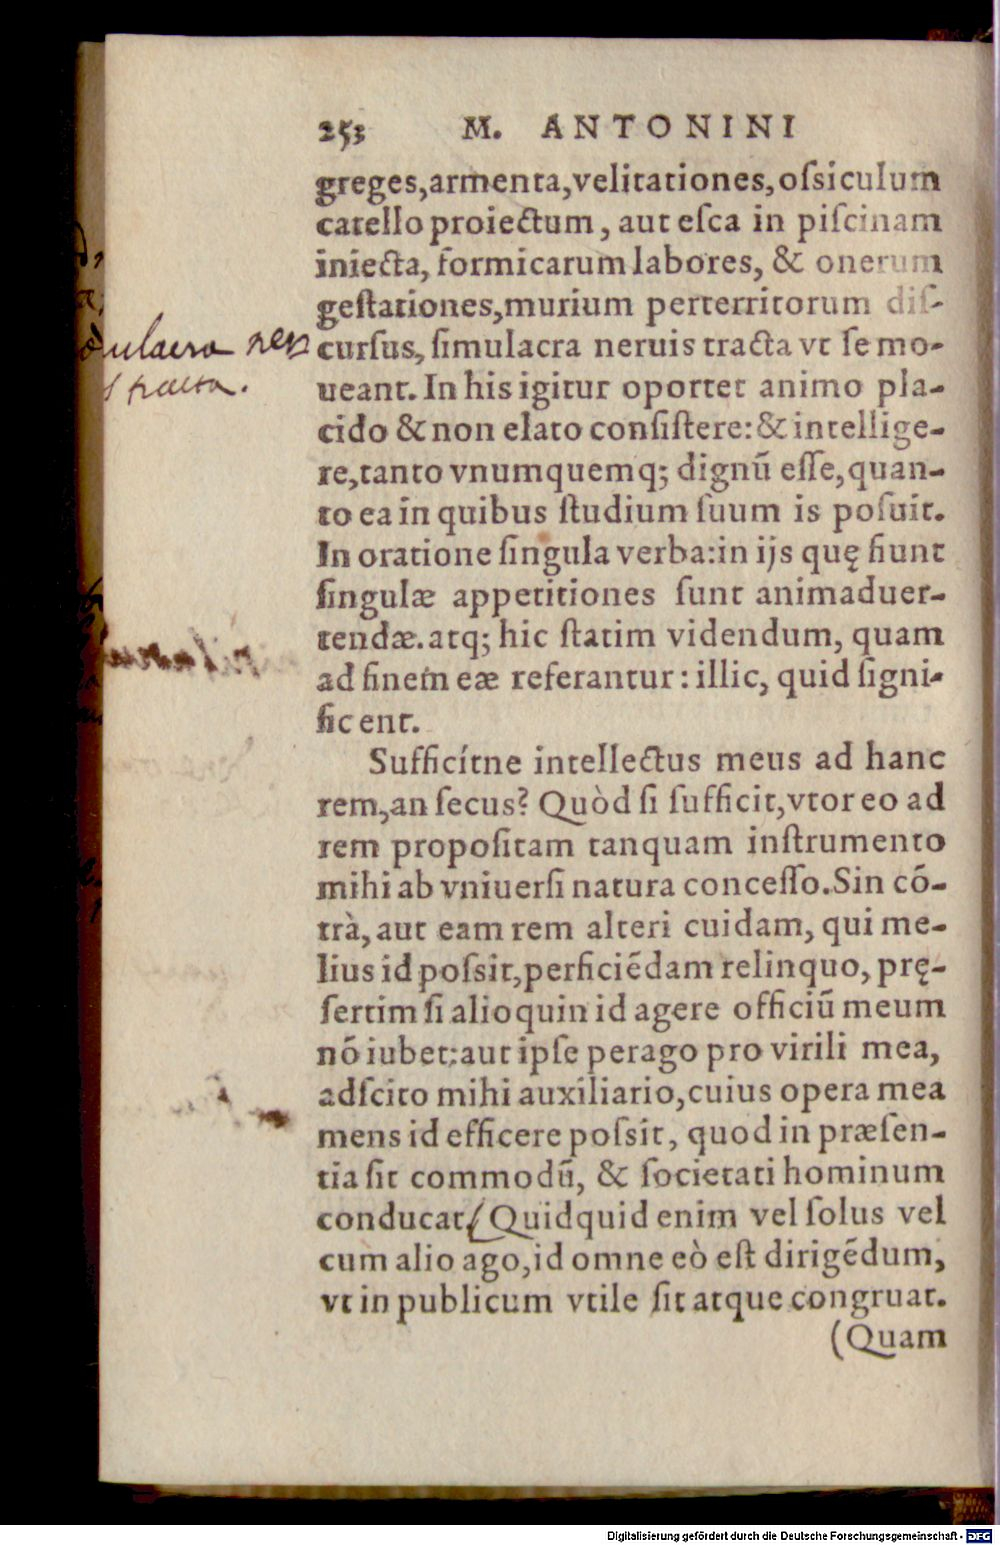 253 M. ANTONINI
greges,armenta,velitationes,oſsiculum
catello proiectum, aut eſca in piſcinam
iniecta, formicarum labores, & onerum
geſtationes,murium perterritorum diſ-
curſus, ſimulacra neruis tracta vt ſe mo-
ueant. In his igitur oportet animo pla-
cido & non elato conſiſtere: & intellige-
re,tanto vnumquemq; dignū eſſe,quan-
to ea in quibus ſtudium ſuum is poſuit.
In oratione ſingula verba:in ijs quę fiunt
ſingulæ appetitiones ſunt animaduer-
tendæ.atq; hic ſtatim videndum, quam
ad finem eæ referantur : illic, quid ſigni-
ficent.
Sufficítne intellectus meus ad hanc
rem,an ſecus? Quòd ſi ſufficit,vtor eo ad
rem propoſitam tanquam inſtrumento
mihi ab vniuerſi natura conceſſo.Sin cō-
trà, aut eam rem alteri cuidam, qui me-
lius id poſsit,perficiēdam relinquo, prę-
ſertim ſi alioquin id agere officiū meum
nō iubet:aut ipſe perago pro virili mea,
adſcito mihi auxiliario,cuius opera mea
mens id efficere poſsit, quod in præſen-
tia ſit commodū, & ſocietati hominum
conducat. Quidquid enim vel ſolus vel
cum alio ago,id omne eò eſt dirigēdum,
vt in publicum vtile ſit atque congruat.
(Quam
ulacra ner
tracta.
Digitalisierung gefördert durch die Deutsche Forschungsgemeinschaft - DFG